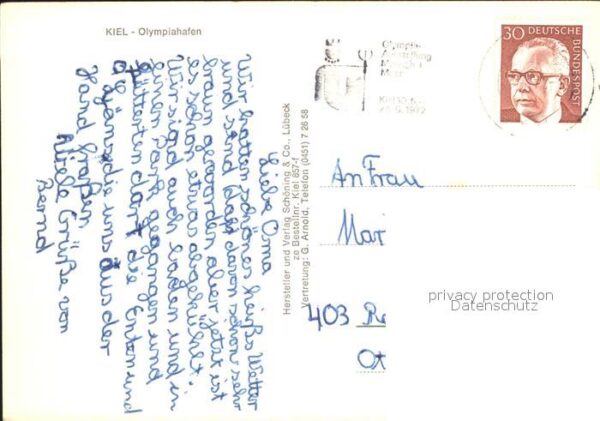 KIEL - Olympiahafen
Liebe Oma
Wir hatten schönes heißs Wetter
und sind klad davon schön sehr
braun geworden aber jetzt ist
es schon etwas abgekühlt.
Wir sind auch baden und in
einen Park gegangen und
fütterten dort die Enten und
Gänse die uns aus der
Hand fraßen
Viele Grüße von
Bernd
Hersteller und Verlag Schöning & Co., Lübeck
zo Bestellnr. Kiel 857-f
Vertretung: G. Arnold, Telefon (0451) 7 26 58
Olympia-
Ausstellung
30 DEUTSCHE
BUNDESPOST
An Frau
Mar
403 Ra
Ot
privacy protection
Datenschutz